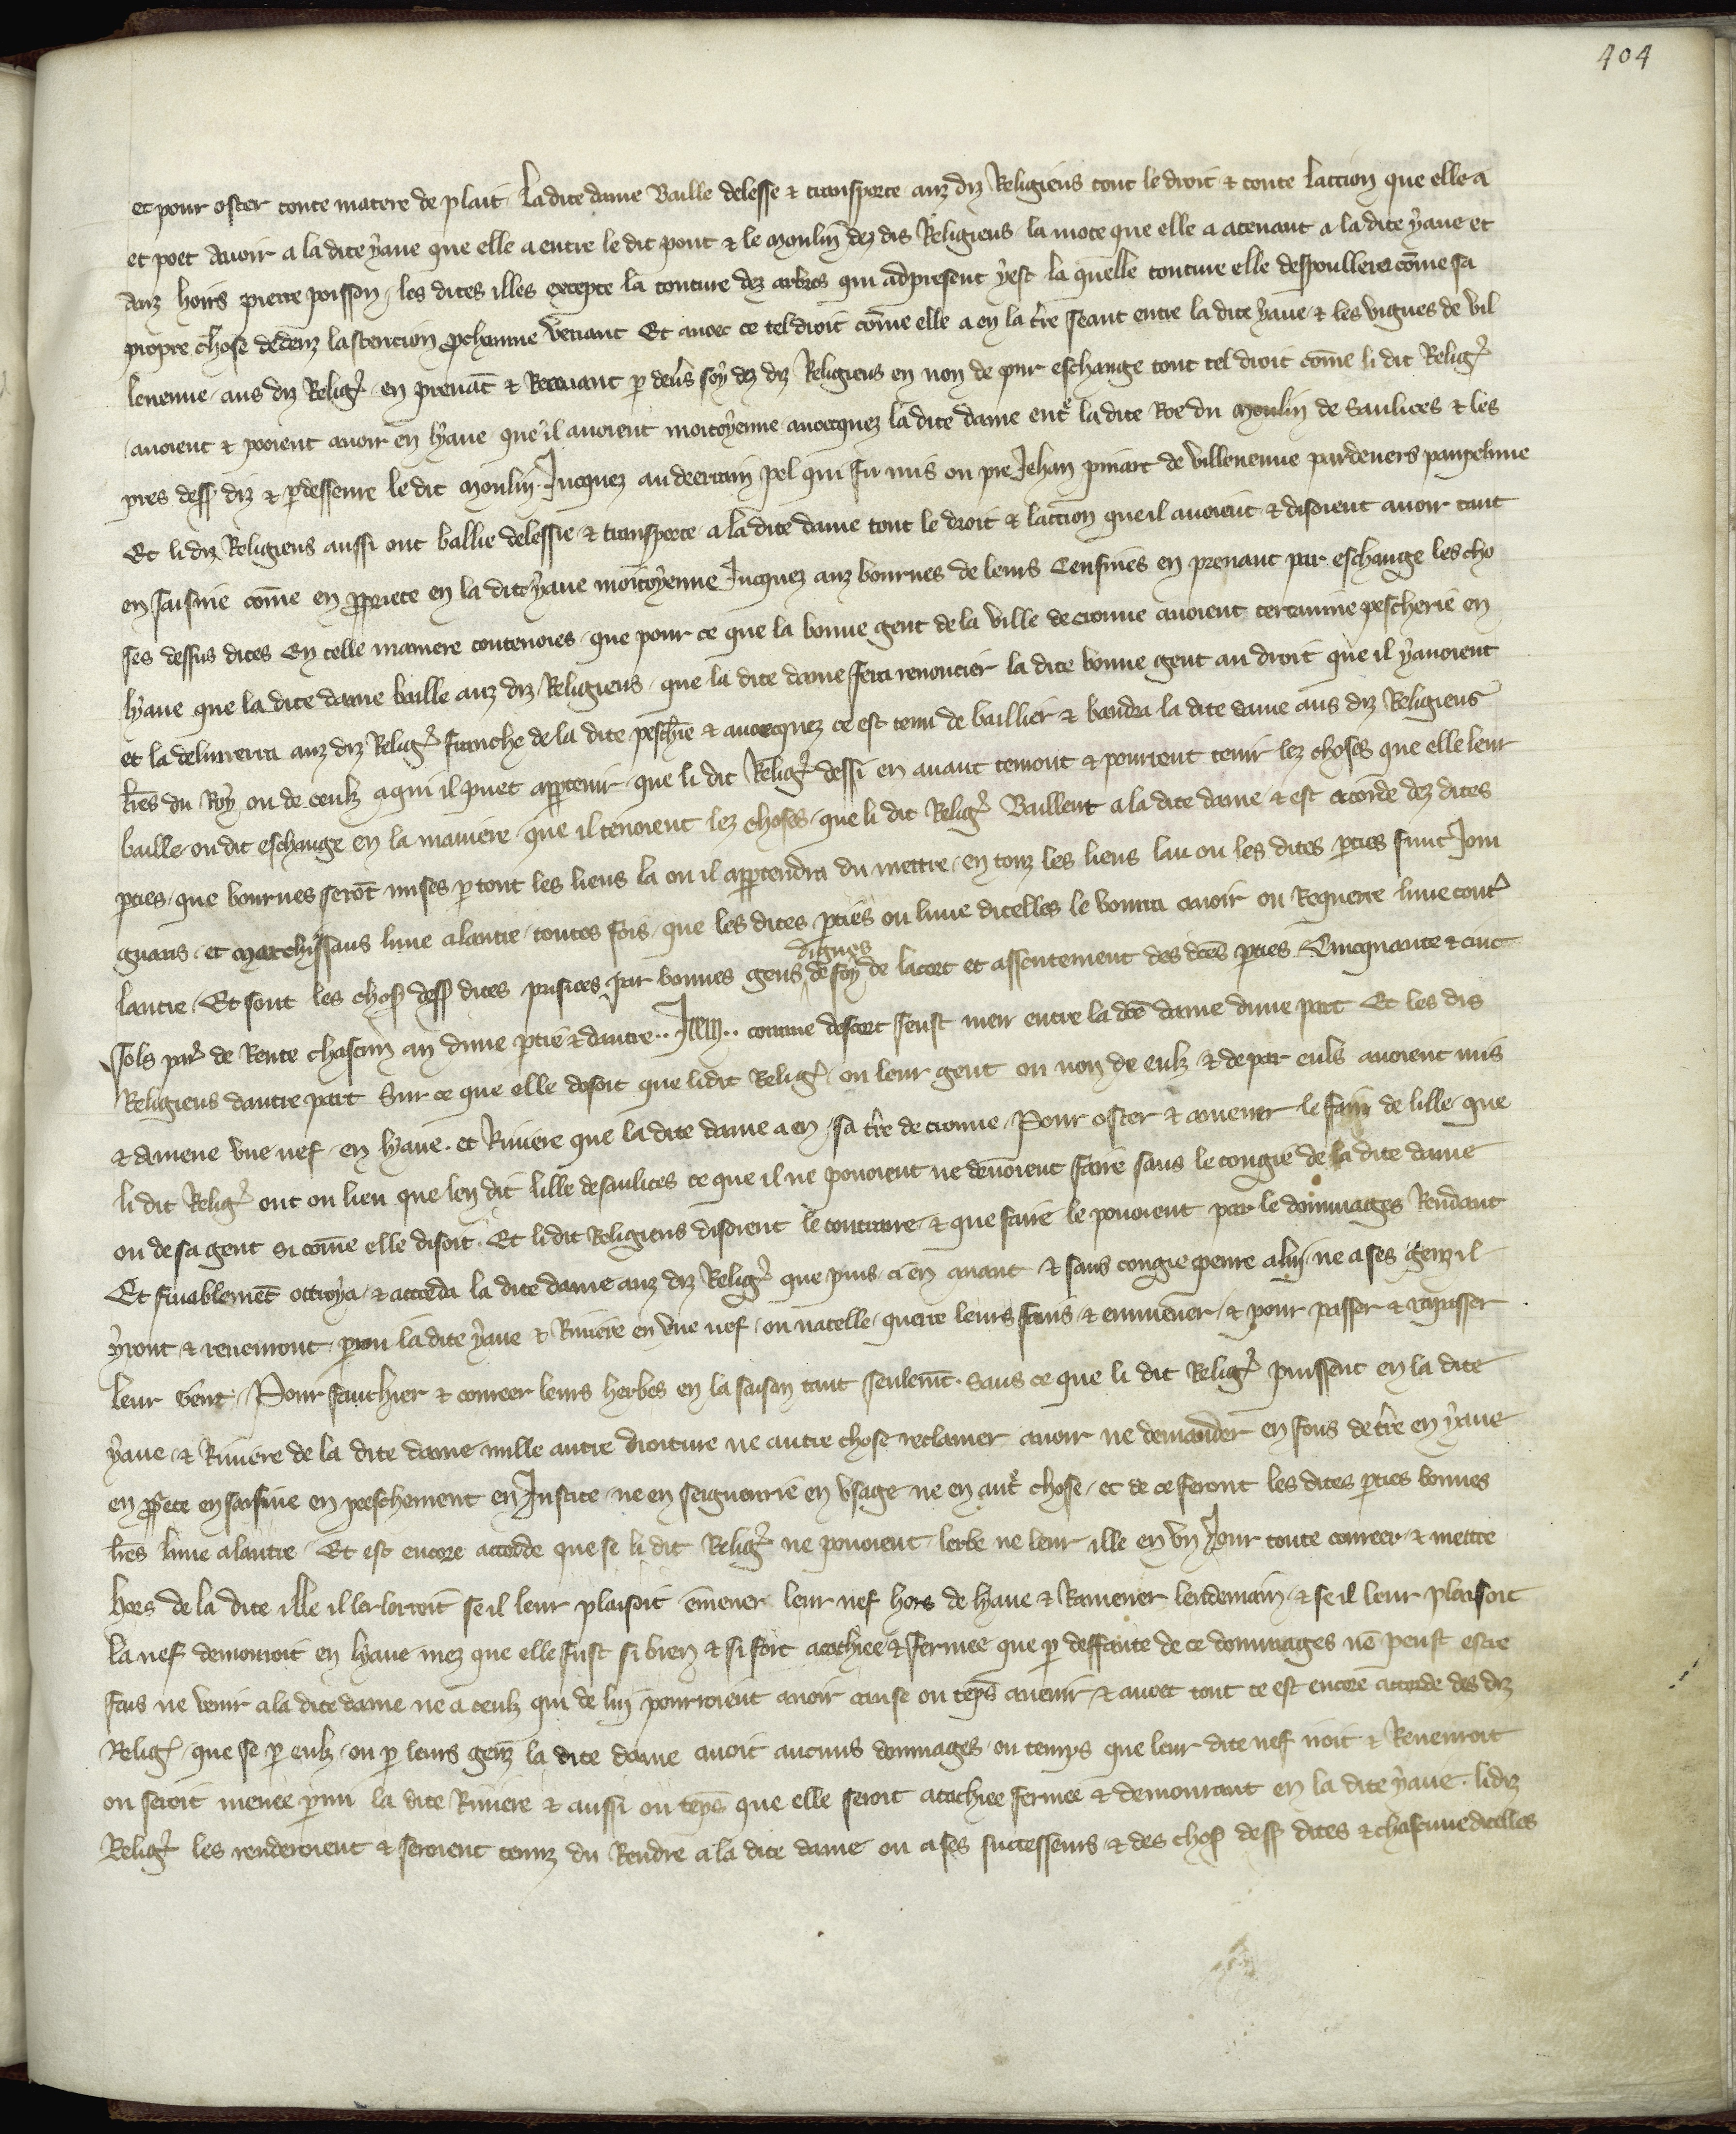 404
et pour oster toute matere de plait La dite dame Baille delesse & transporte auz diz Religieus tout le droit & toute laction que elle a
et poet Avoir a la dite yaue que elle a entre le dit pont & le Moulin dez dis Religieus la mote que elle a atenant a la dite yaue et
Auz hoirs pierre poisson les dites illes excepte la tonture dez arbres qui adpresent y est la quelle tonture elle despoullera cõme sa
propre chose dedenz lastention prchainne venant Et avec ce tel droit cõme elle a en la tr̃e seant entre la dite yaue & les vignes de Vil
leneuue aus diz Relig̃ en prenãt & Recevant p deũs soy dez diz Religieus en non de pur eschange tout tel droit cõme li dit Relig̃
avoient & pooient avoir en lyaue que il avoient moitoyenne avecquez la dite dame entˢ la dite Roe du Moulin de Saulices & les
prez dess̃ diz & p desseure le dit Moulin Jucquez au decertain pel qui fu mis ou pre Jehan pinart de Villeneuue pardevers
Et li diz Religieus aussi ont ballie delessie & transporte a la dite dame tout le droit & laction que il avoient & disoient avoir tant
en saisine cõme en ppriete en la dite yaue moitoyenne Jucquez auz bournes de leurs Censiues en prenant par eschange les cho
ses dessus dites En telle maniere toutevoies que pour ce que la bonne gent de la ville de cronne avoient certainne pescherie en
lyaue que la dite dame baille auz diz Religieus que la dite dame fera renoncier la dite bonne gent au droit que il y avoient
et la deliurerra auz diz Relig̃ franche de la dite pesch̃ie & avecquez ce est tenu de baillier & baudra la dite dame aus diz Religieus
lr̃es du Roy ou de ceulz a qui il puet appertenir que li dit Relig̃ dessi en avant tenront & pourront tenir lez choses que elle leur
baille ou dit eschange en la maniere que il tenoient lez choses que li dit Relig̃ Baillent a la dite dame & est acorde dez dites
pties que bournes serõt mises p tout les lieus la ou il appertendra du mettre en touz les lieus lau ou les dites pties sunt Join
gnans et Marchissans lune a lautre toutes fois que les dites pties ou lune dicelles le vourra avoir ou Requerre lune contˢ
lautre Et sont les chos̃ dess̃ dites prisiees par bonnes gens dignes de foy de lacort et assentement des dc̃es pties Cincquante & cinc
sols par̃ de Rente chascun an dune ptie & dautre .. Item .. comme descort feust meu entre la dc̃e dame dune part Et les dis
Religieus dautre part Sur ce que elle disoit que li dit Relig̃ ou leur gent ou non de eulz & de par euls avoient mis
& Amene vne nef en lyaue et Riviere que la dite dame a en sa tr̃e de cronne Pour oster & amener le fain de lille que
li dit Relig̃ ont ou lieu que len dit lille de saulices ce que il ne pouoient ne devoient faire sans le congie de la dite dame
ou de sa gent si cõme elle disoit Et li dit Religieus disoient le contraire & que faire le pouoient par le dommages Rendant
Et finablemẽt ottroya & accorda la dite dame auz diz Relig̃ que puis ci en avant & sans congie penre a luy ne a ses genz il
yront & revenront pmi la dite yaue & Riviere en vne nef ou nacelle querre leurs fains & emmener & pour passer & rapasser
leur gent Pour fauchier & conreer leurs herbes en la saison tant seulem̃t sans ce que li dit Relig̃ puissent en la dite
yaue & Riviere de la dite dame nulle autre droiture ne autre chose reclamer avoir ne demander en fons de tr̃e en yaue
en ppete en saisine en peeschement en Justice ne en seigneurie en vsage ne en autˢ chose et de ce feront les dites pties bonnes
lr̃es lune a lautre Et est encore accorde que se li dit Relig̃ ne pouoient lerbe ne leur ille en vn Jour toute conreer & mettre
hors de la dite ille il se il leur plaisoit ẽmener leur nef hors de lyaue & Ramener lendemain & se il leur plaisoit
la nef demorroit en lyaue mez que elle fust si bien & si fort atachiee & fermee que p deffaute de ce dommages nẽ peust estre
fais ne venir a la dite dame ne a ceulz qui de luy pourroient avoir cause ou tẽps avenir & avec tout ce est encore accorde des diz
Relig̃ que se p eulz ou p leurs genz la dite dame avoit aucuns dommages ou temps que leur dite nef iroit & Revenroit
ou seroit menee pmi la dite Riviere & aussi ou tẽps que elle seroit atachiee fermee & demourant en la dite yaue li diz
Relig̃ les renderoient & seroient tenuz du Rendre a la dite dame ou a ses successeurs & des chos̃ dess̃ dites & chascune dicelles